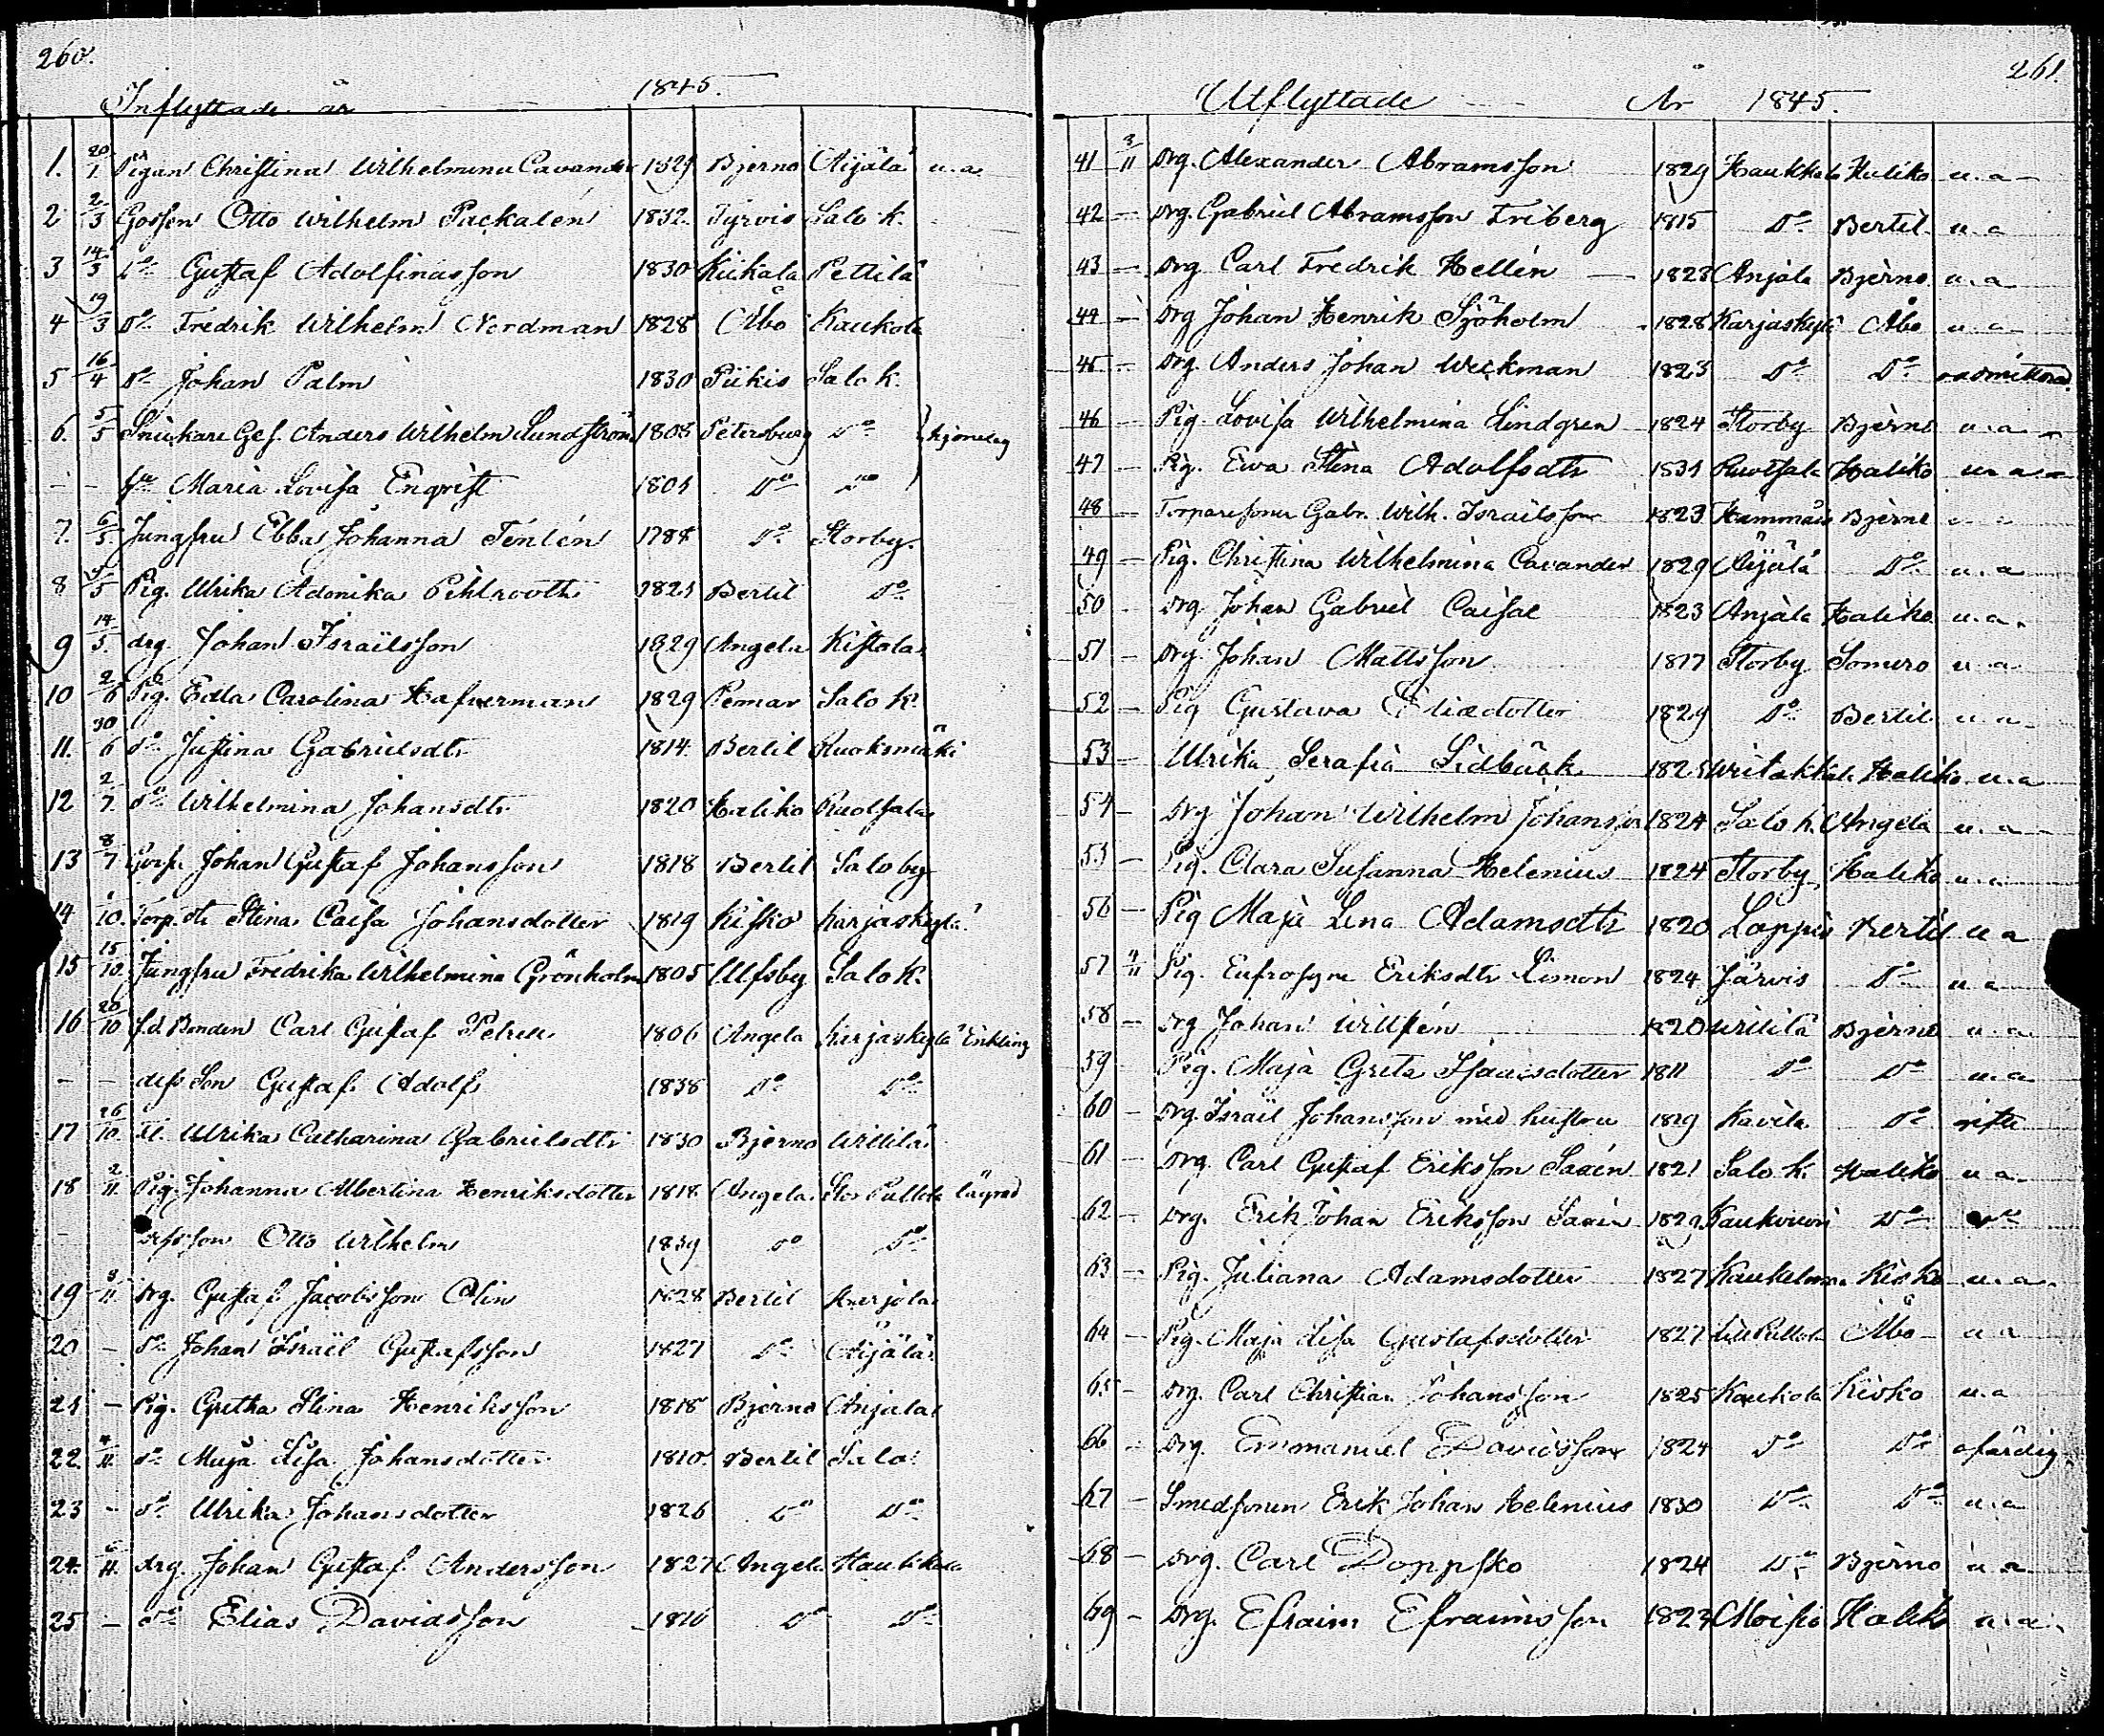 260.
Inflyttade år 1845.
1. 20/1 Pigan Christina Wilhelmina Cavander 1829 Bjerno Äijälä u.a.
2 2/3 Gossen Otto Wilhelm Packalén 1832. Tyrvis Salo k.
3 14/3 Do Gustaf Adolfinasson 1830 Kiikala Pettilä
4 19/3 Do Fredrik Wilhelm Nordman 1828 Åbo Kaukola
5 16/4 Do Johan Palm 1830 Piikis Salo k.
6. 5/5 Snickare Ges. Anders Wilhelm Lundström 1808 Petersburg Do
- - Maria Lovisa Enqvist 1801 Do Do
7. 6/5 Jungfru Ebba Johanna Tenlén 1788 Do Storby.
8 /5 Pig. Ulrika Adonika Pihlrooth 1821 Bertil Do
9 14/5. drg. Johan Israilsson 1829 Angela Kistola
10 2/6 Pig. Edla Carolina Hafverman 1829 Pemar Salo k.
11. 30/6 Do Justina Gabrielsdtr 1814. Bertil Ruoksmäki
12 2/7. Do Wilhelmina Johansdtr 1820 Haliko Ruotsala
13 8/7 Torp. Johan Gustaf Johansson 1818 Bertil Salo by
14 1/10. Torp. dtr Stina Caisa Johansdotter 1819 Kisko Karjaskylä
15 15/10. Jungfru Fredrika Wilhelmina Grönholm 1805 Ulfsby Salo K.
16 20/10 f.d. Bonden Carl Gustaf Petrell 1806 Angela Karjaskylä Enkling
- - dess Son Gustaf Adolf 1838 Do Do
17 26/10. Ulrika Catharina Gabrielsdtr 1830 Bjerno Willilä
18 2/11. Pig. Johanna Albertina Henriksdotter 1818 Angela Stor Pullola lägrad
- dess son Otto Wilhelm 1839 Do Do
19 3/11. Drg. Gustaf Jacobsson Olin 1828 Bertil Karjola
20 - Do Johan Israël Gustafsson 1827 Do Äijälä
21 - Pig. Gretha Stina Henriksson 1818 Bjerno Anjala
22 4/11 Do Maja Lisa Johansdotter 1810. Bertil Salo
23 - Do Ulrika Johansdotter 1826 Do Do
24. 6/11. drg. Johan Gustaf Andersson 1827 Angela Haukkala
25 - Do Elias Davidsson 1816 Do Do
261.
Utflyttade År 1845.
41 3/11 Drg. Alexander Abramsson 1829 Haukkala Haliko u.a
42 - Drg. Gabriel Abramsson Friberg 1815 Do Bertil u.a
43 - Drg Carl Fredrik Hellén 1828 Anjala Bjerno u.a
44 - Drg Johan Henrik Sjöholm 1828 Karjaskylä Åbo u.a
45 - Drg. Anders Johan Weckman 1823 Do Do oadmitterad
46 - Pig. Lovisa Wilhelmina Lindgren 1824 Storby Bjerno u.a
47 - Pig. Ewa Stina Adolfsdtr 1831 Ruotsala Haliko u.a
48 - Torparesonen Gabr. Wilh. Israilsson 1823 Hammais Bjerno u.a
49 - Pig. Christina Wilhelmina Cavander 1829 Äijälä Do u.a
50 - Drg. Johan Gabriel Caisae 1823 Anjala Haliko u.a.
51 - Drg. Johan Mattsson 1817 Storby Somero u.a
52 - Pig Gustava Eliædotter 1829 Do Bertil u.a
53 - Ulrika Serafia Lidbäck 1825 Writakkala Haliko u.a
54 - Drg Johan Wilhelm Johansson 1824 Salo k. Angela u.a
55 - Pig. Clara Susanna Helenius 1824 Storby Haliko u.a
56 - Pig Maja Lena Adamsdtr 1820 Loppis Bertil u a
57 4/11 Pig. Eufrosyne Eriksdtr Limon 1824 Järvis Do u.a
58 - Drg Johan Willsén 1820 Wililä Bjerno u.a
59 - Pig. Maja Greta Isaacsdotter 1811 Do Do u.a
60 - Drg. Israil Johansson med hustru 1819 Kavila Do gifte
61 - Drg. Carl Gustaf Eriksson Saxén 1821 Salo k. Haliko u.a.
62 - Drg. Erik Johan Eriksson Saxén 1829 Kaukvuori Do Do
63 - Pig. Juliana Adamsdotter 1827 Kaukelma Kisko u.a.
64 - Pig. Maja Lisa Gustafsdotter 1827 Lill Pullola Åbo u a
65 - Drg. Carl Christian Johansson 1825 Kaukola Kisko u.a
66 - Drg. Emmanuel Davidsson 1824 Do Do ofärdig
67 - Smedsonen Erik Johan Helenius 1830 Do Do u.a
68 - Drg. Carl Doppsko 1824 Do Bjerno u.a
69 - Drg. Efraim Efraimsson 1823 Moisio Haliko u.a.